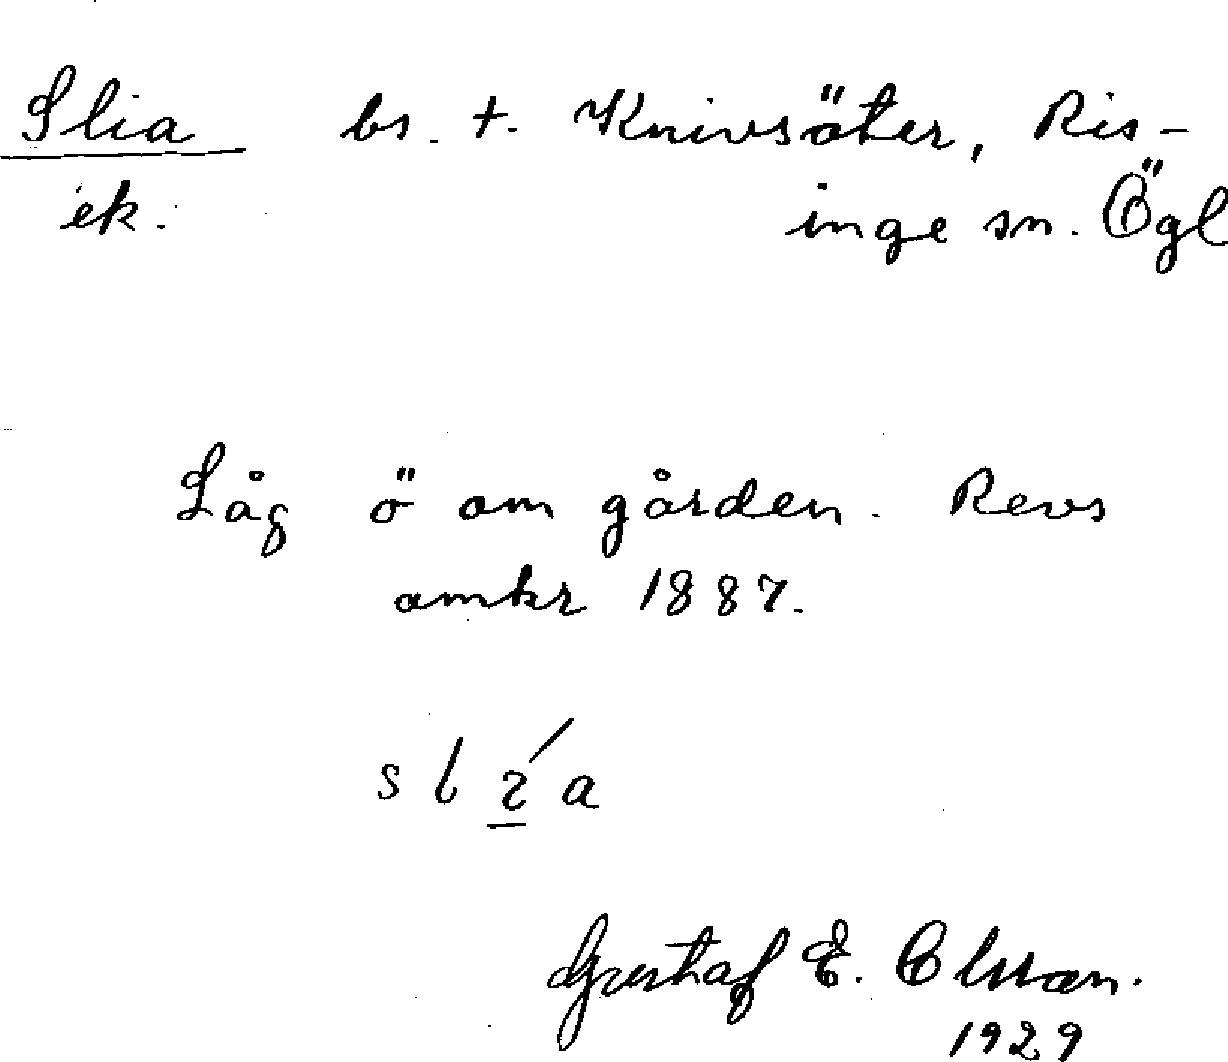 Slia bs. t. Knivsäter, Ris-
ek. inge sn. Ögl
Låg ö om gården. Revs
omkr 1887.
Gustaf E. Olsson.
1929